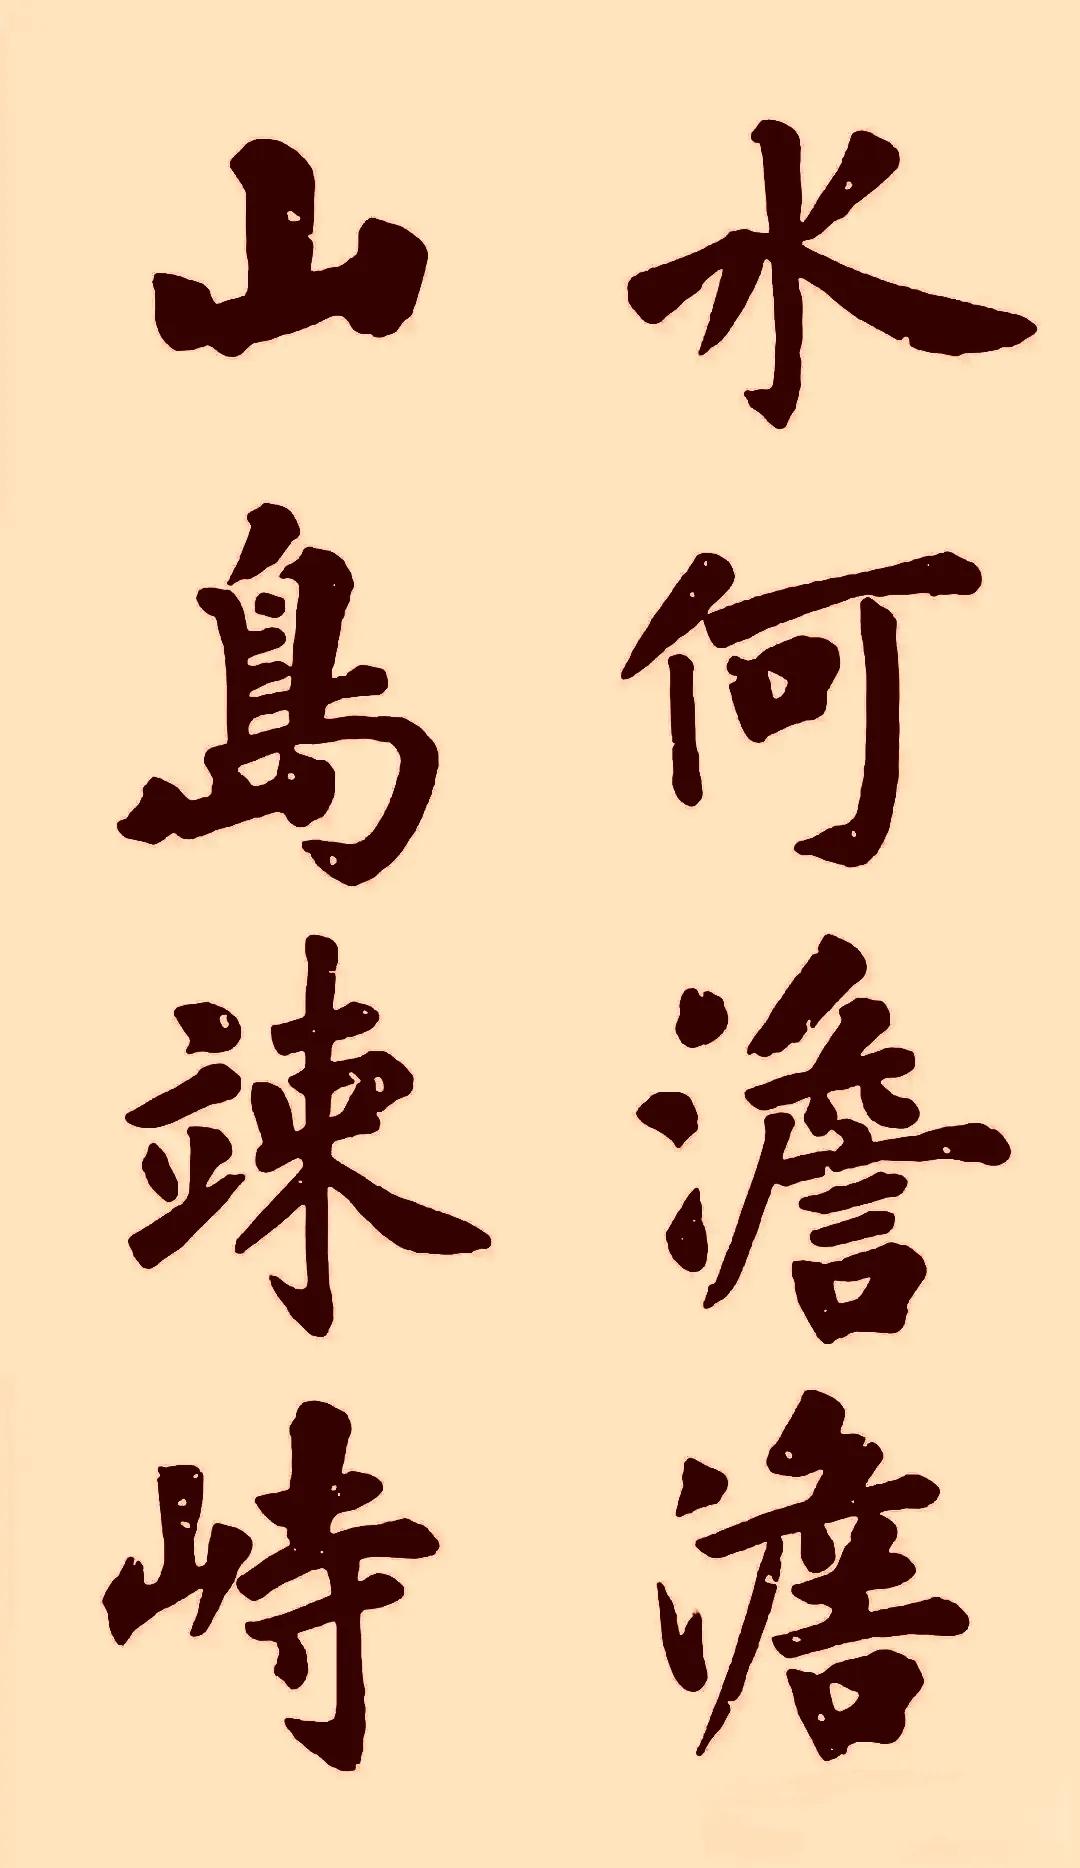 水何澹澹
山島竦峙